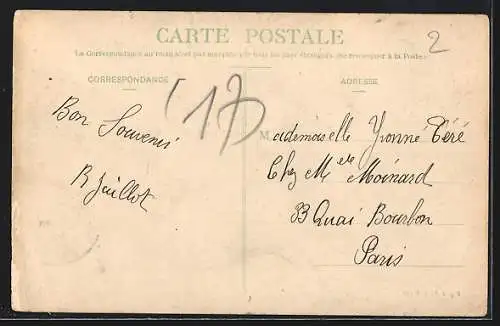 CARTE POSTALE
2
La Correspondance au recto n'est pas acceptée par tous les pays étrangers (Se renseigner à la Poste)
CORRESPONDANCE
ADRESSE
(17)
Bon Souvenir
R Jaillot
Mademoiselle Yvonne Péré
Chez Melle Moinard
33 Quai Bourbon
Paris